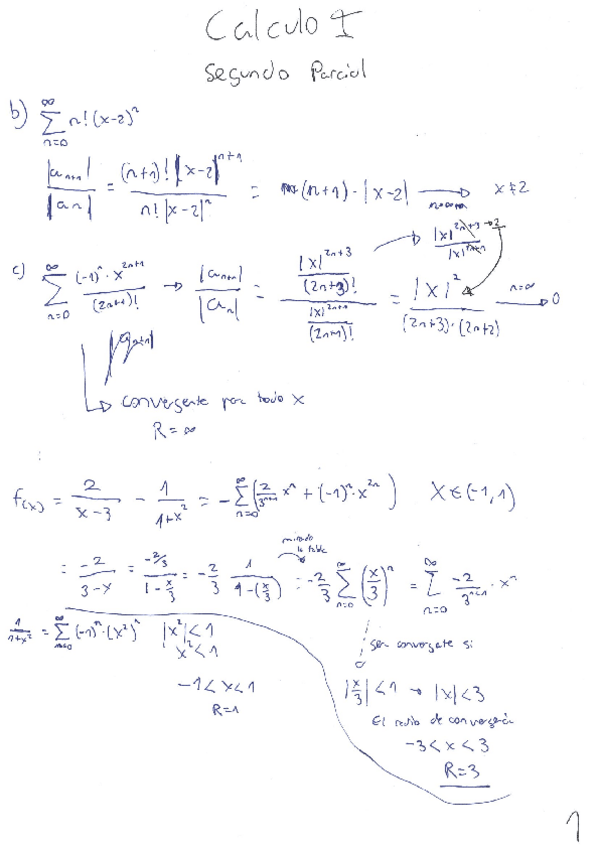 Calculo I
Segundo Parcial
b) ∑_{n=0}^{∞} n! (x-2)^n
|a_{n+1}| / |a_n| = (n+1)! |x-2|^{n+1} / n! |x-2|^n = (n+1) · |x-2| → x ≠ 2
|x|^{2n+3} / |x|^{2n+1} → 2
c) ∑_{n=0}^{∞} (-1)^n · x^{2n+1} / (2n+1)! → |a_{n+1}| / |a_n| = (|x|^{2n+3} / (2n+3)!) / (|x|^{2n+1} / (2n+1)!) = |x|^2 / (2n+3)·(2n+2) → n=∞ 0
convergente por todo x
R = ∞
f(x) = 2/(x-3) - 1/(1+x^2) = -∑_{n=0}^{∞} (2/3^{n+1} x^n + (-1)^n · x^{2n}) x ∈ (-1, 1)
mirando la tabla
= -2/(3-x) = (-2/3)/(1 - x/3) = -2/3 1/(1-(x/3)) = -2/3 ∑_{n=0}^{∞} (x/3)^n = ∑_{n=0}^{∞} -2/3^{n+1} · x^n
1/(1+x^2) = ∑_{n=0}^{∞} (-1)^n · (x^2)^n |x^2| < 1
x^2 < 1
-1 < x < 1
R=1
ser convergente si
|x/3| < 1 → |x| < 3
El radio de convergencia
-3 < x < 3
R = 3
1